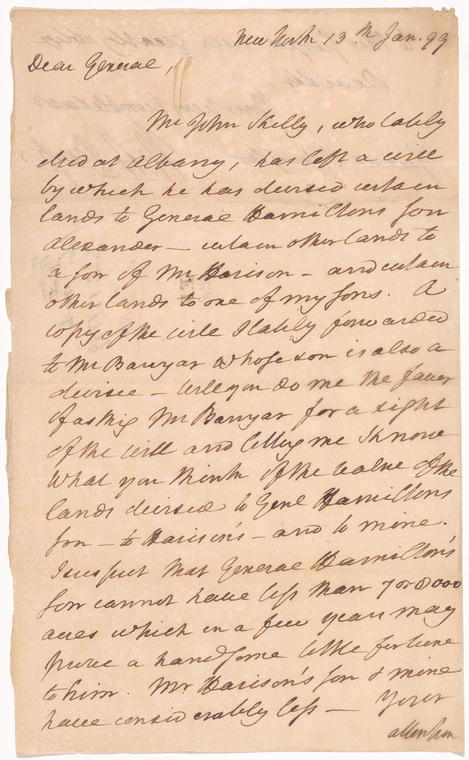 New York 13th Jan. 99
Dear General,
Mr John Kelly, who lately
died at Albany, has left a will
by which he has devised certain
lands to General Hamiltons son
Alexander — certain other lands to
a son of Mr Harison — and certain
other lands to one of my sons. A
copy of the will I lately forwarded
to Mr Banyar whose son is also a
devisee — will you do me the favor
of asking Mr Banyar for a sight
of the will and letting me know
what you think of the value of the
lands devised to Genl Hamiltons
son — to Harison's — and to mine.
I suspect that General Hamilton's
son cannot have less than 7 or 8000
acres which in a few years may
prove a handsome little fortune
to him. Mr Harison's son & mine
have considerably less — Your
attention